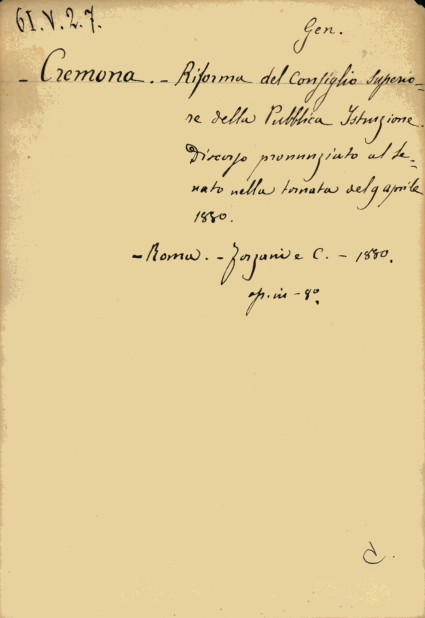 61.V.2.7.
Gen.
- Cremona. - Riforma del Consiglio Superio-
re della Pubblica Istruzione.
Discorso pronunziato al Se-
nato nella tornata del 9 aprile
1880.
- Roma. - Forzani e C. - 1880.
op. in - 8º.
C.